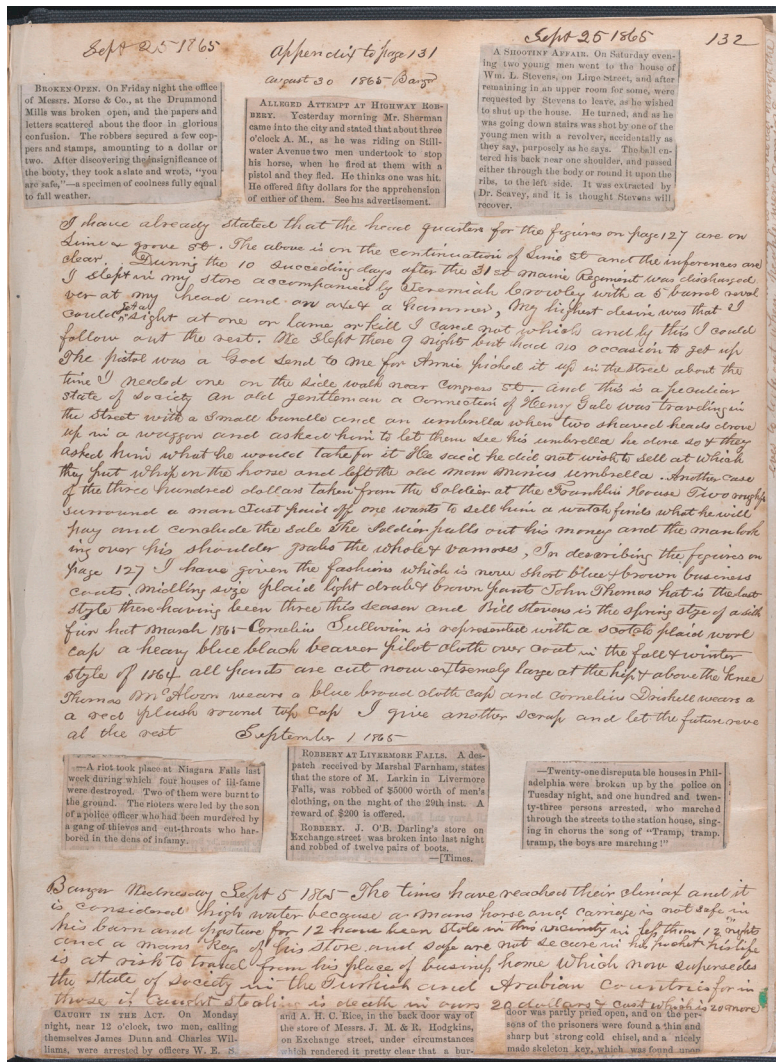 Sept 25 1865
Appendix to page 131
Sept 25 1865
132
august 30 1865 Bangor
BROKEN OPEN. On Friday night the office
of Messrs. Morse & Co., at the Drummond
Mills was broken open, and the papers and
letters scattered about the floor in glorious
confusion. The robbers secured a few cop-
pers and stamps, amounting to a dollar or
two. After discovering the insignificance of
the booty, they took a slate and wrote, "you
are safe,"—a specimen of coolness fully equal
to fall weather.
ALLEGED ATTEMPT AT HIGHWAY ROB-
BERY. Yesterday morning Mr. Sherman
came into the city and stated that about three
o'clock A. M., as he was riding on Still-
water Avenue two men undertook to stop
his horse, when he fired at them with a
pistol and they fled. He thinks one was hit.
He offered fifty dollars for the apprehension
of either of them. See his advertisement.
A SHOOTINF AFFAIR. On Saturday even-
ing two young men went to the house of
Wm. L. Stevens, on Lime Street, and after
remaining in an upper room for some, were
requested by Stevens to leave, as he wished
to shut up the house. He turned, and as he
was going down stairs was shot by one of the
young men with a revolver, accidentally as
they say, purposely as he says. The ball en-
tered his back near one shoulder, and passed
either through the body or round it upon the
ribs, to the left side. It was extracted by
Dr. Seavey, and it is thought Stevens will
recover.
I have already stated that the head quarters for the figures on page 127 are on
Lime & grove St. The above is on the continuation of Lime St and the inferences are
clear. During the 10 succeding days after the 31st maine Regiment was discharged
I slept in my store accompanied by Jeremiah Crowley with a 5 barrel revol
ver at my head and an axe & a hammer, My highest desire was that I
could get a sight at one or lame or kill I cared not which and by this I could
follow out the rest. We slept there 9 night but had no occasion to get up
The pistol was a God send to me for Annie picked it up in the street about the
time I needed one on the side walk near Congress St. And this is a peculiar
state of society an old gentleman a connection of Henry Gale was traveling in
the street with a small bundle and an umbrella when two shaved heads drove
up in a waggon and asked him to let them see his umbrella he done so & they
asked him what he would take for it He said he did not wish to sell at which
they put whip on the horse and left the old man minus umbrella. Another case
of the three hundred dollars taken from the Soldier at the Franklin House Two roughs
surround a man Just paid off one wants to sell him a watch finds what he will
pay and conclude the sale The Soldier pulls out his money and the man look
ing over his shoulder grabs the whole & vamoses, In describing the figures on
page 127 I have given the fashions which is now short blue & brown business
coats, midling size plaid light drab & brown pants John Thomas hat is the last
style there having been three this season and Bill Stevens is the spring stye of a silk
fur hat March 1865 - Cornelius Sullivin is represented with a scotch plaid wool
cap a heavy blue black beaver pilot cloth over coat in the fall & winter
style of 1864 all pants are cut now extremely large at the hip & above the knee
Thomas McAloon wears a blue broad cloth cap and Cornelius Driskell wears a
a red plush round top cap I give another scrap and let the future reve
al the rest September 1 1865
—A riot took place at Niagara Falls last
week during which four houses of ill-fame
were destroyed. Two of them were burnt to
the ground. The rioters were led by the son
of a police officer who had been murdered by
a gang of thieves and cut-throats who har-
bored in the dens of infamy.
ROBBERY AT LIVERMORE FALLS. A des-
patch received by Marshal Farnham, states
that the store of M. Larkin in Livermore
Falls, was robbed of $5000 worth of men's
clothing, on the night of the 29th inst. A
reward of $200 is offered.
ROBBERY. J. O'B. Darling's store on
Exchange street was broken into last night
and robbed of twelve pairs of boots.
—[Times.
—Twenty-one disreputable houses in Phil-
adelphia were broken up by the police on
Tuesday night, and one hundred and twen-
ty-three persons arrested, who marched
through the streets to the station house, sing-
ing in chorus the song of "Tramp, tramp,
tramp, the boys are marching!"
Bangor Wednesday Sept 5 1865 The times have reached their climax and it
is considered high water because a mans horse and carriage is not safe in
his barn and pasture for 12 have been stole in this vicinity in less than 12 nights
and a mans keys of his store and safe are not secure in his pocket his life
is at risk to travel from his place of business home which now supersedes
the state of society in the Turkish and Arabian countries for in
those if caught stealing is death in ours 20 dollars & cost which is 20 more
CAUGHT IN THE ACT. On Monday
night, near 12 o'clock, two men, calling
themselves James Dunn and Charles Wil-
liams, were arrested by officers W. E. S.
and A. H. C. Rice, in the back door way of
the store of Messrs. J. M. & R. Hodgkins,
on Exchange street, under circumstances
which rendered it pretty clear that a bur-
door was partly pried open, and on the per-
sons of the prisoners were found a thin and
sharp but strong cold chisel, and a nicely
made skeleton key, which was found upon